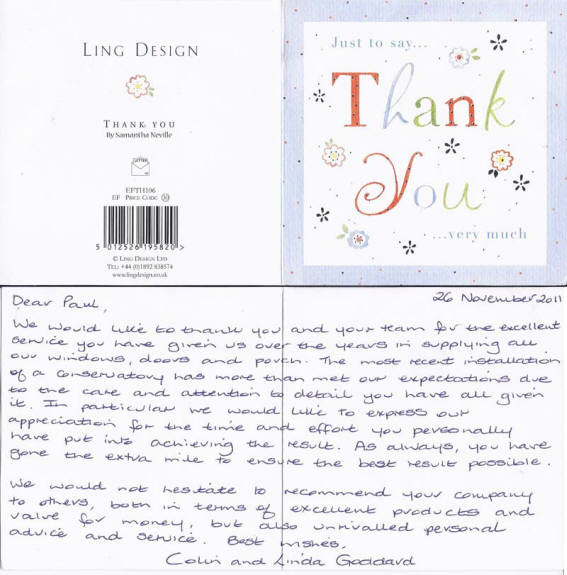 LING DESIGN
THANK YOU
By Samantha Neville
EFTH106
EF PRICE CODE 30
5 012526 195820 >
© LING DESIGN LTD
TEL: +44 (0)1892 838574
www.lingdesign.co.uk
Just to say...
Thank
You
...very much
26 November 2011
Dear Paul,
We would like to thank you and your team for the excellent
service you have given us over the years in supplying all
our windows, doors and porch. The most recent installation
of a conservatory has more than met our expectations due
to the care and attention to detail you have all given
it. In particular we would like to express our
appreciation for the time and effort you personally
have put into achieving the result. As always, you have
gone the extra mile to ensure the best result possible.
We would not hesitate to recommend your company
to others, both in terms of excellent products and
value for money, but also unrivalled personal
advice and service. Best wishes,
Colin and Linda Goddard